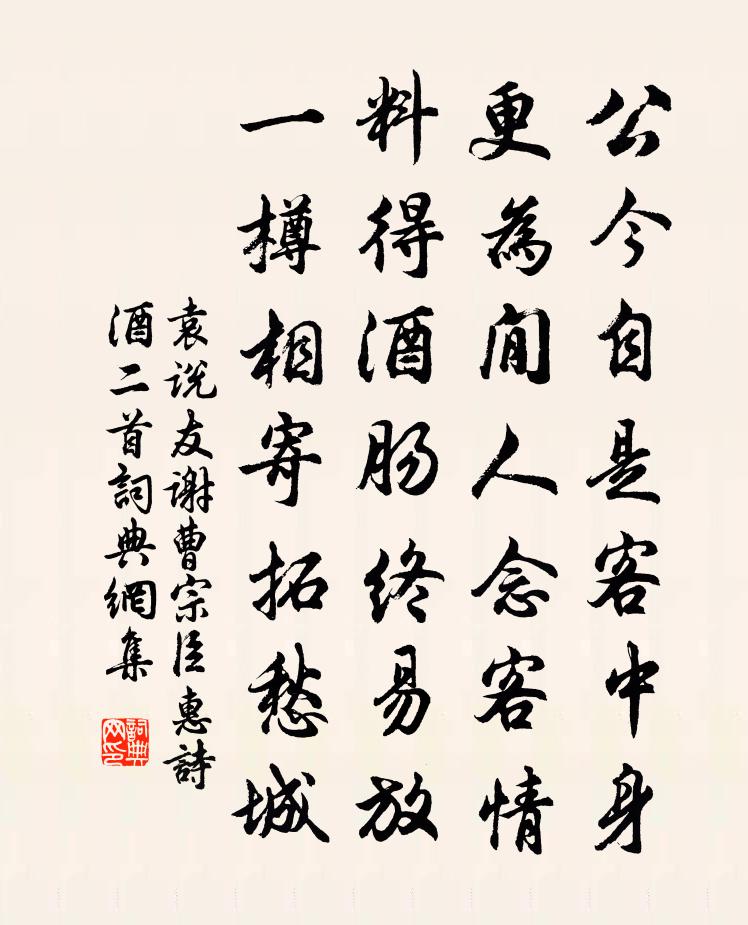 公今自是客中身
更為閒人念客情
料得酒肠终易放
一樽相寄拓愁城
袁说友谢曹宗臣惠詩
酒二首詞典網集
詞典网印